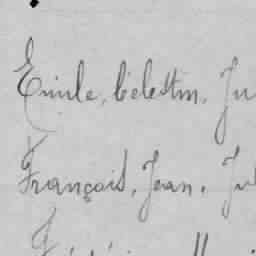 Emile, Célestin, Ju
François, Jean, Jul